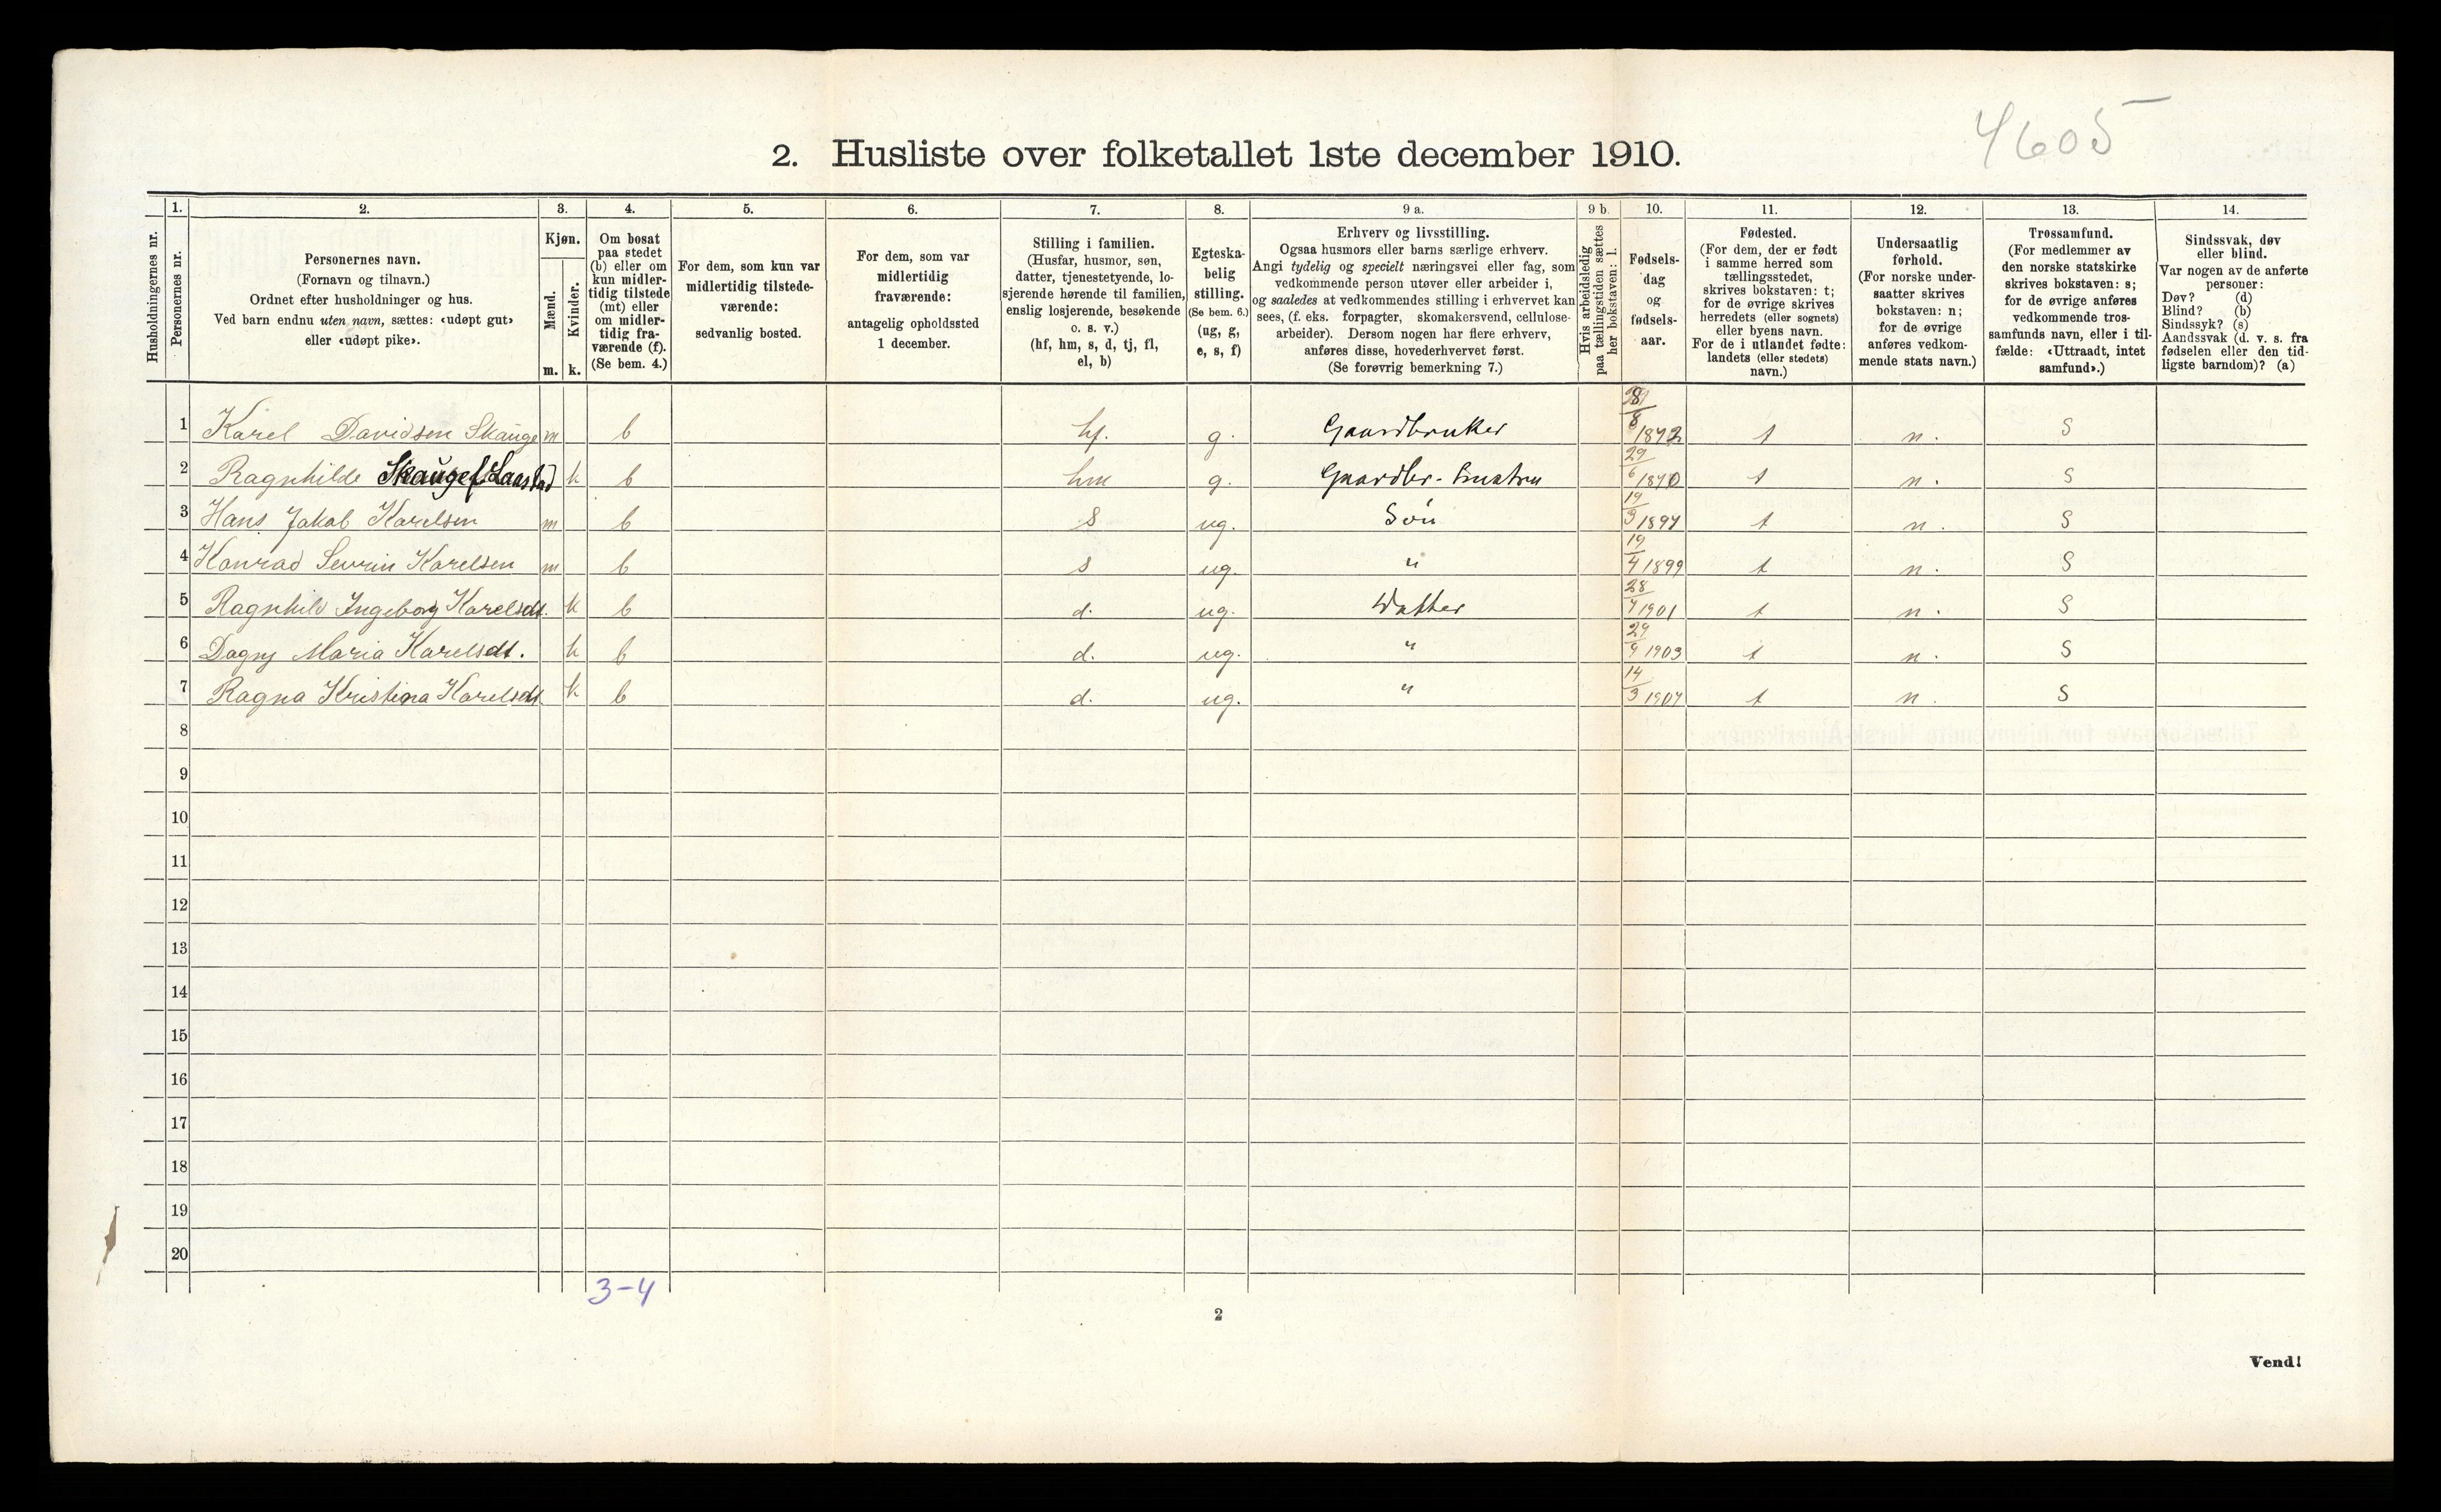 4605
2. Husliste over folketallet 1ste december 1910.
Husholdningernes nr.
1.
Personernes nr.
2.
Personernes navn.
(Fornavn og tilnavn.)
Ordnet efter husholdninger og hus.
Ved barn endnu uten navn, sættes: «udøpt gut»
eller «udøpt pike».
3.
Kjøn.
Mænd.
Kvinder.
m. k.
4.
Om bosat
paa stedet
(b) eller om
kun midler-
tidig tilstede
(mt) eller
om midler-
tidig fra-
værende (f).
(Se bem. 4.)
5.
For dem, som kun var
midlertidig tilstede-
værende:
sedvanlig bosted.
6.
For dem, som var
midlertidig
fraværende:
antagelig opholdssted
1 december.
7.
Stilling i familien.
(Husfar, husmor, søn,
datter, tjenestetyende, lo-
sjerende hørende til familien,
enslig losjerende, besøkende
o. s. v.)
(hf, hm, s, d, tj, fl,
el, b)
8.
Egteska-
belig
stilling.
(Se bem. 6.)
(ug, g,
e, s, f)
9 a.
Erhverv og livsstilling.
Ogsaa husmors eller barns særlige erhverv.
Angi tydelig og specielt næringsvei eller fag, som
vedkommende person utøver eller arbeider i,
og saaledes at vedkommendes stilling i erhvervet kan
sees, (f. eks. forpagter, skomakersvend, cellulose-
arbeider). Dersom nogen har flere erhverv,
anføres disse, hovederhvervet først.
(Se forøvrig bemerkning 7.)
9 b.
Hvis arbeidsledig
paa tællingstiden sættes
her bokstaven: l.
10.
Fødsels-
dag
og
fødsels-
aar.
11.
Fødested.
(For dem, der er født
i samme herred som
tællingsstedet,
skrives bokstaven: t;
for de øvrige skrives
herredets (eller sognets)
eller byens navn.
For de i utlandet fødte:
landets (eller stedets)
navn.)
12.
Undersaatlig
forhold.
(For norske under-
saatter skrives
bokstaven: n;
for de øvrige
anføres vedkom-
mende stats navn.)
13.
Trossamfund.
(For medlemmer av
den norske statskirke
skrives bokstaven: s;
for de øvrige anføres
vedkommende tros-
samfunds navn, eller i til-
fælde: «Uttraadt, intet
samfund».)
14.
Sindssvak, døv
eller blind.
Var nogen av de anførte
personer:
Døv? (d)
Blind? (b)
Sindssyk? (s)
Aandssvak (d. v. s. fra
fødselen eller den tid-
ligste barndom)? (a)
1 Karel Davidsen Skauge m b hf. g. Gaardbruker 8 1872 t n. S
2 Ragnhilde Skauge f. Laastad k b hm g. Gaardbr-hustru 29/6 1870 t n. S
3 Hans Jakob Karelsen m b s ug. Søn 19/3 1897 t n. S
4 Konrad Sevrin Karelsen m b s ug. " 19/4 1899 t n. S
5 Ragnhild Ingeborg Karelsdt. k b d. ug. Datter 28/7 1901 t n. S
6 Dagny Maria Karelsdt. k b d. ug. " 29/9 1903 t n. S
7 Ragna Kristina Karelsdt. k b d. ug. " 14/3 1907 t n. S
8
9
10
11
12
13
14
15
16
17
18
19
20
3-4
2
Vend!